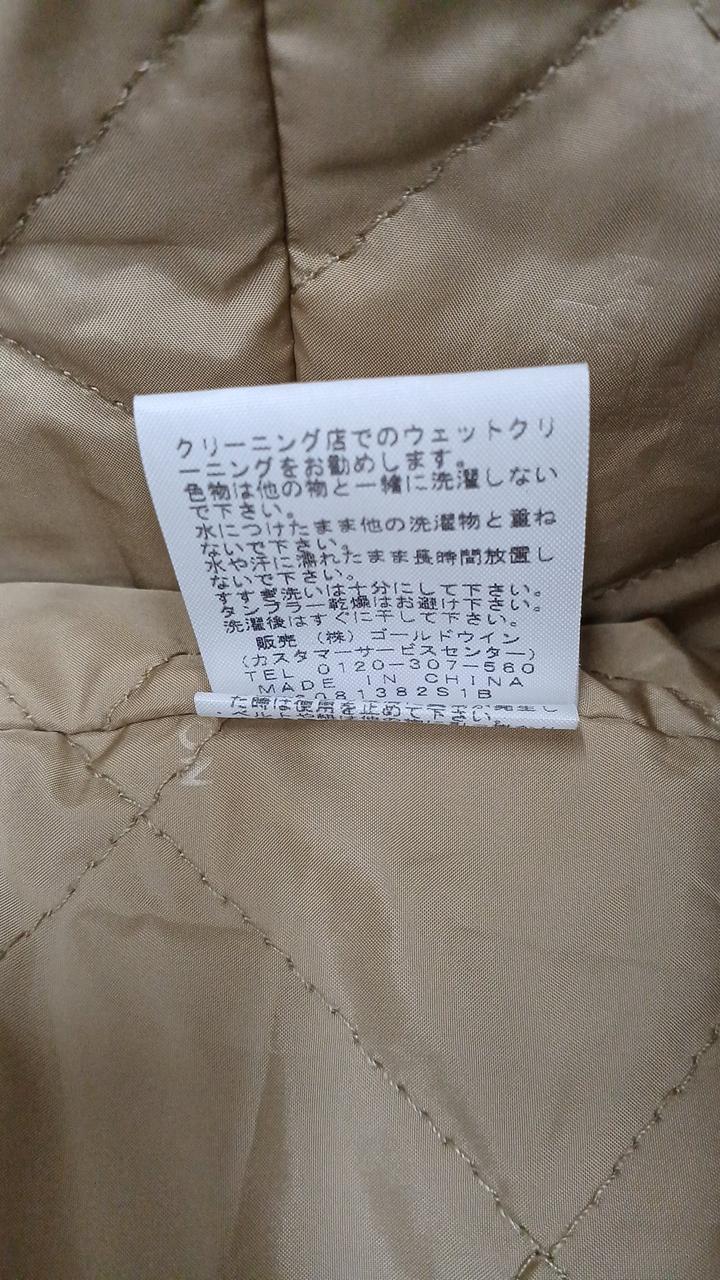 クリーニング店でのウェットクリ
ーニングをお勧めします。
色物は他の物と一緒に洗濯しない
で下さい。
水につけたまま他の洗濯物と重ね
ないで下さい。
水や汗に濡れたまま長時間放置し
ないで下さい。
すすぎ洗いは十分にして下さい。
タンブラー乾燥はお避け下さい。
洗濯後はすぐに干して下さい。
販売 (株)ゴールドウイン
(カスタマーサービスセンター)
TEL 0120-307-560
MADE IN CHINA
081382S1B
た時は使用を止めて下さい。